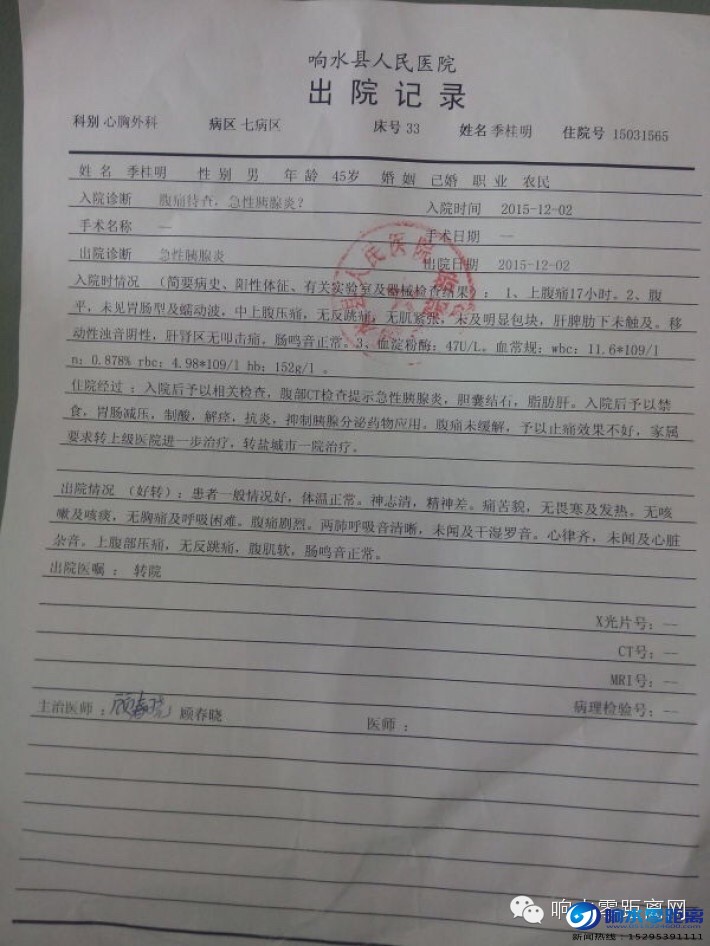 响水县人民医院
出院记录
科别 心胸外科 病区 七病区 床号 33 姓名 季桂明 住院号 15031565
姓名 季桂明 性别 男 年龄 45岁 婚姻 已婚 职业 农民
入院诊断 腹痛待查，急性胰腺炎？ 入院时间 2015-12-02
手术名称 — 手术日期 —
出院诊断 急性胰腺炎 出院日期 2015-12-02
入院时情况 （简要病史、阳性体征、有关实验室及器械检查结果）：1、上腹痛17小时。2、腹
平，未见胃肠型及蠕动波，中上腹压痛，无反跳痛，无肌紧张，未及明显包块，肝脾肋下未触及。移
动性浊音阴性，肝肾区无叩击痛。肠鸣音正常。3、血淀粉酶：47U/L。血常规：wbc：11.6*109/l
n：0.878% rbc：4.98*109/l hb：152g/l 。
住院经过：入院后予以相关检查，腹部CT检查提示急性胰腺炎，胆囊结石，脂肪肝。入院后予以禁
食，胃肠减压，制酸，解痉，抗炎，抑制胰腺分泌药物应用。腹痛未缓解，予以止痛效果不好，家属
要求转上级医院进一步治疗，转盐城市一院治疗。
出院情况 （好转）：患者一般情况好，体温正常。神志清，精神差。痛苦貌，无畏寒及发热。无咳
嗽及咳痰，无胸痛及呼吸困难。腹痛剧烈。两肺呼吸音清晰，未闻及干湿罗音。心律齐，未闻及心脏
杂音。上腹部压痛，无反跳痛，腹肌软，肠鸣音正常。
出院医嘱：转院
X光片号：—
CT号：—
MRI号：—
病理检验号：—
主治医师：顾春晓 顾春晓 医师：
人民医院
响水零距离网
响水零距离
新闻热线：15295391111